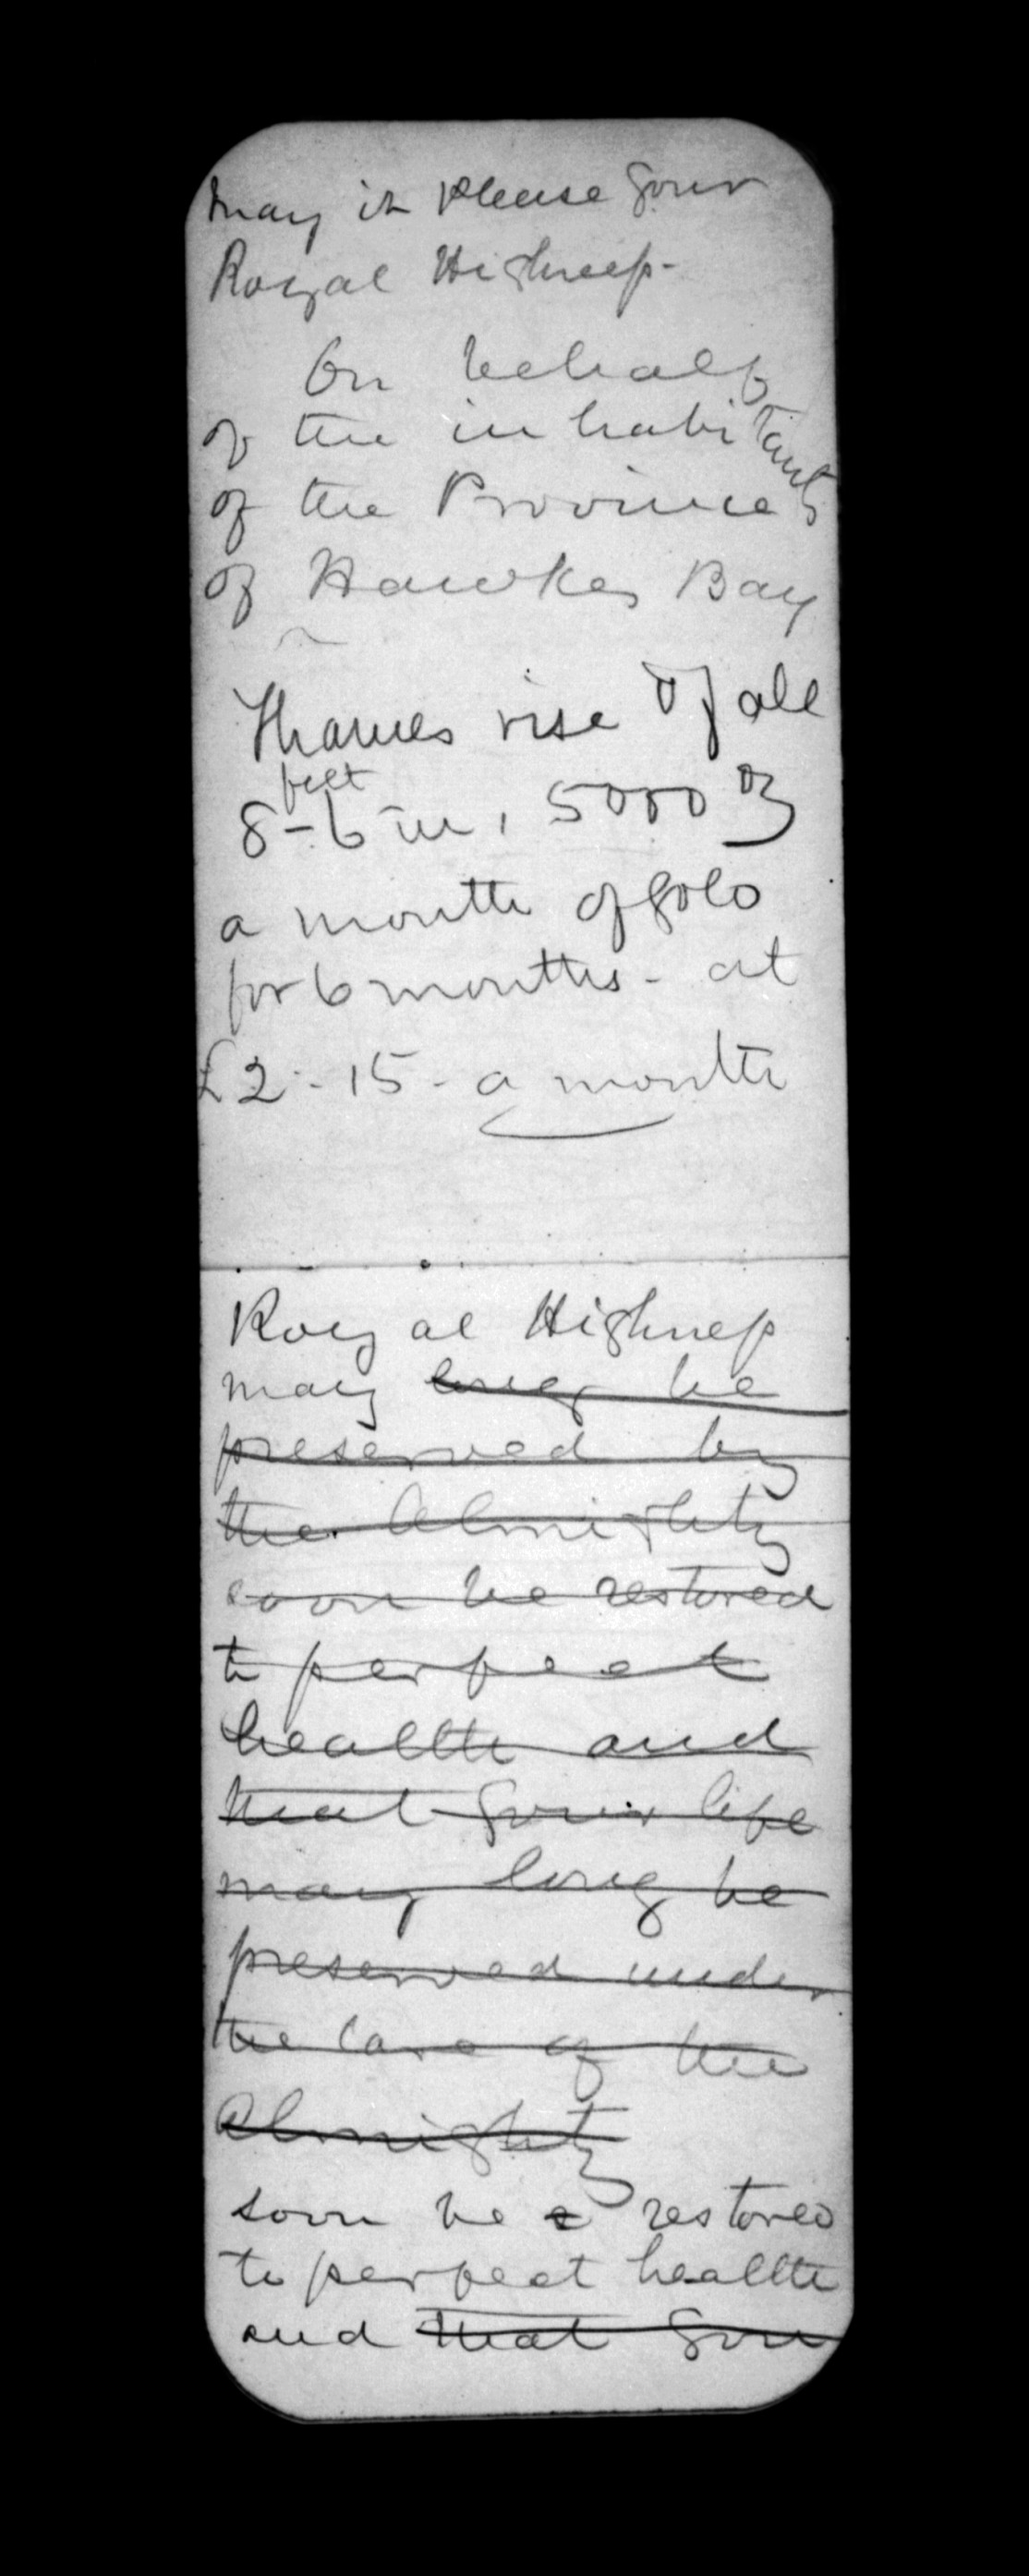 May it please your
Royal Highness -
On behalf
of the inhabitants
of the Province
of Hawkes Bay
Thames rise of all
8 feet - 6 in, 5000 oz
a month of gold
for 6 months - at
£2 - 15 - a month
Royal Highness
may long be
preserved by
the Almighty
soon be restored
to perfect
health and
that your life
may long be
preserved under
the care of the
Almighty
soon be restored
to perfect health
and that your